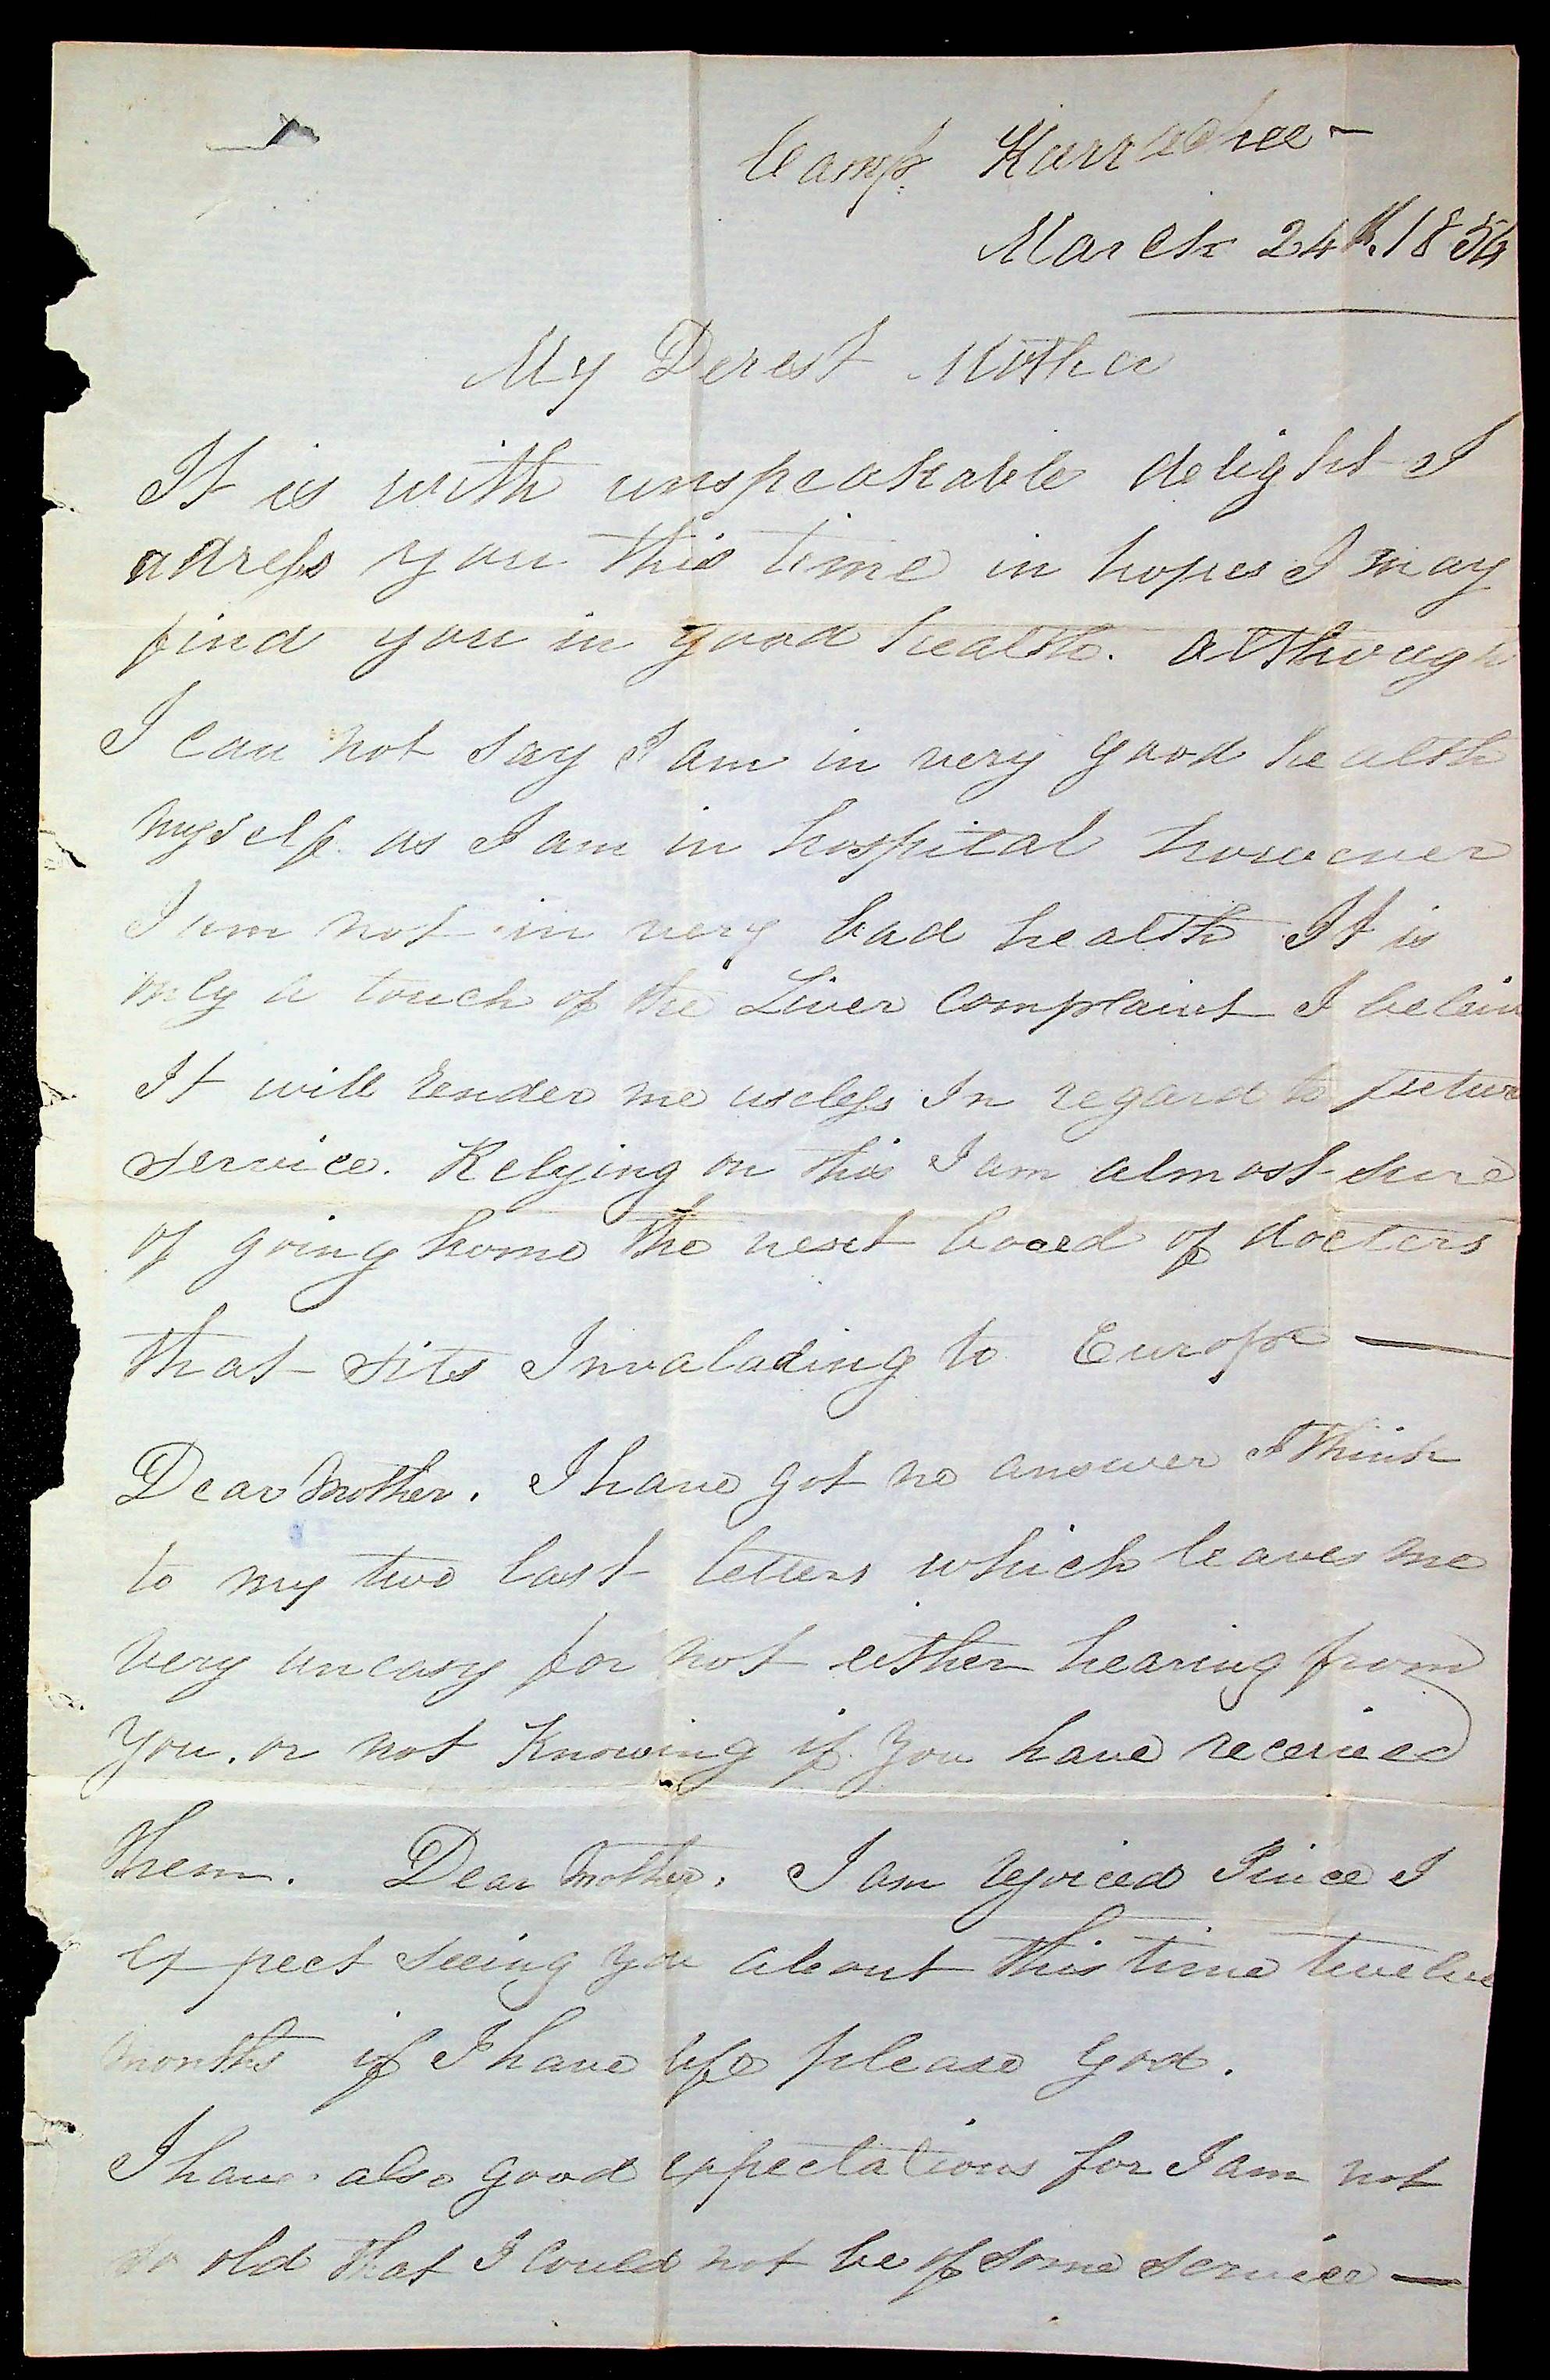 Camp Kurrachee -
March 24th. 1854
My Derest Mother
It is with unspeakable delight I
adress you this time in hopes I may
find you in good health. although
I can not say I am in very good health
myself as I am in hospital however
I am not in very bad health It is
only a touch of the Liver Complaint I beleiv
It will render me useless In regard to future
service. Relying on this I am almost sure
of going home the next board of docters
that sits Invalading to Europe —
Dear Mother. I have got no answer I think
to my two last letters which leaves me
very uneasy for not either hearing from
you. or not Knowing if you have received
them. Dear Mother. I am rejoiced Since I
expect seeing you about this time twelve
months if I have life please God.
I have also good expectations for I am not
so old that I could not be of some service —